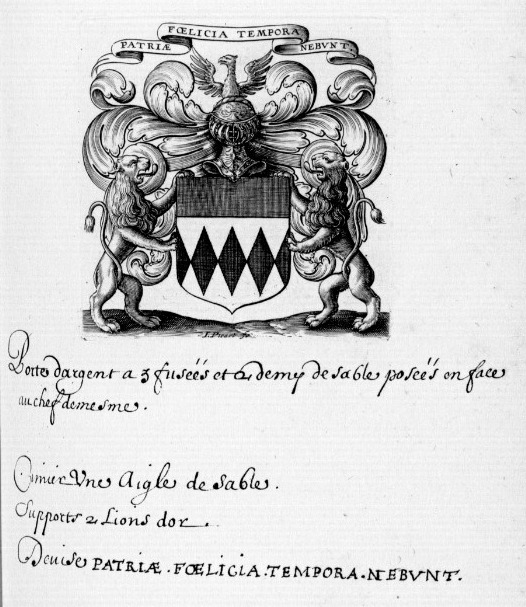 FŒLICIA TEMPORA
PATRIÆ NEBVNT.
I. Picart fe.
Porte d'argent a 3 fuseés et 2 demy de sable poseés en face
au chef de mesme.
Cimier Vne Aigle de sable.
Supports 2 Lions dor.
Devise PATRIÆ . FŒLICIA . TEMPORA . NEBVNT.